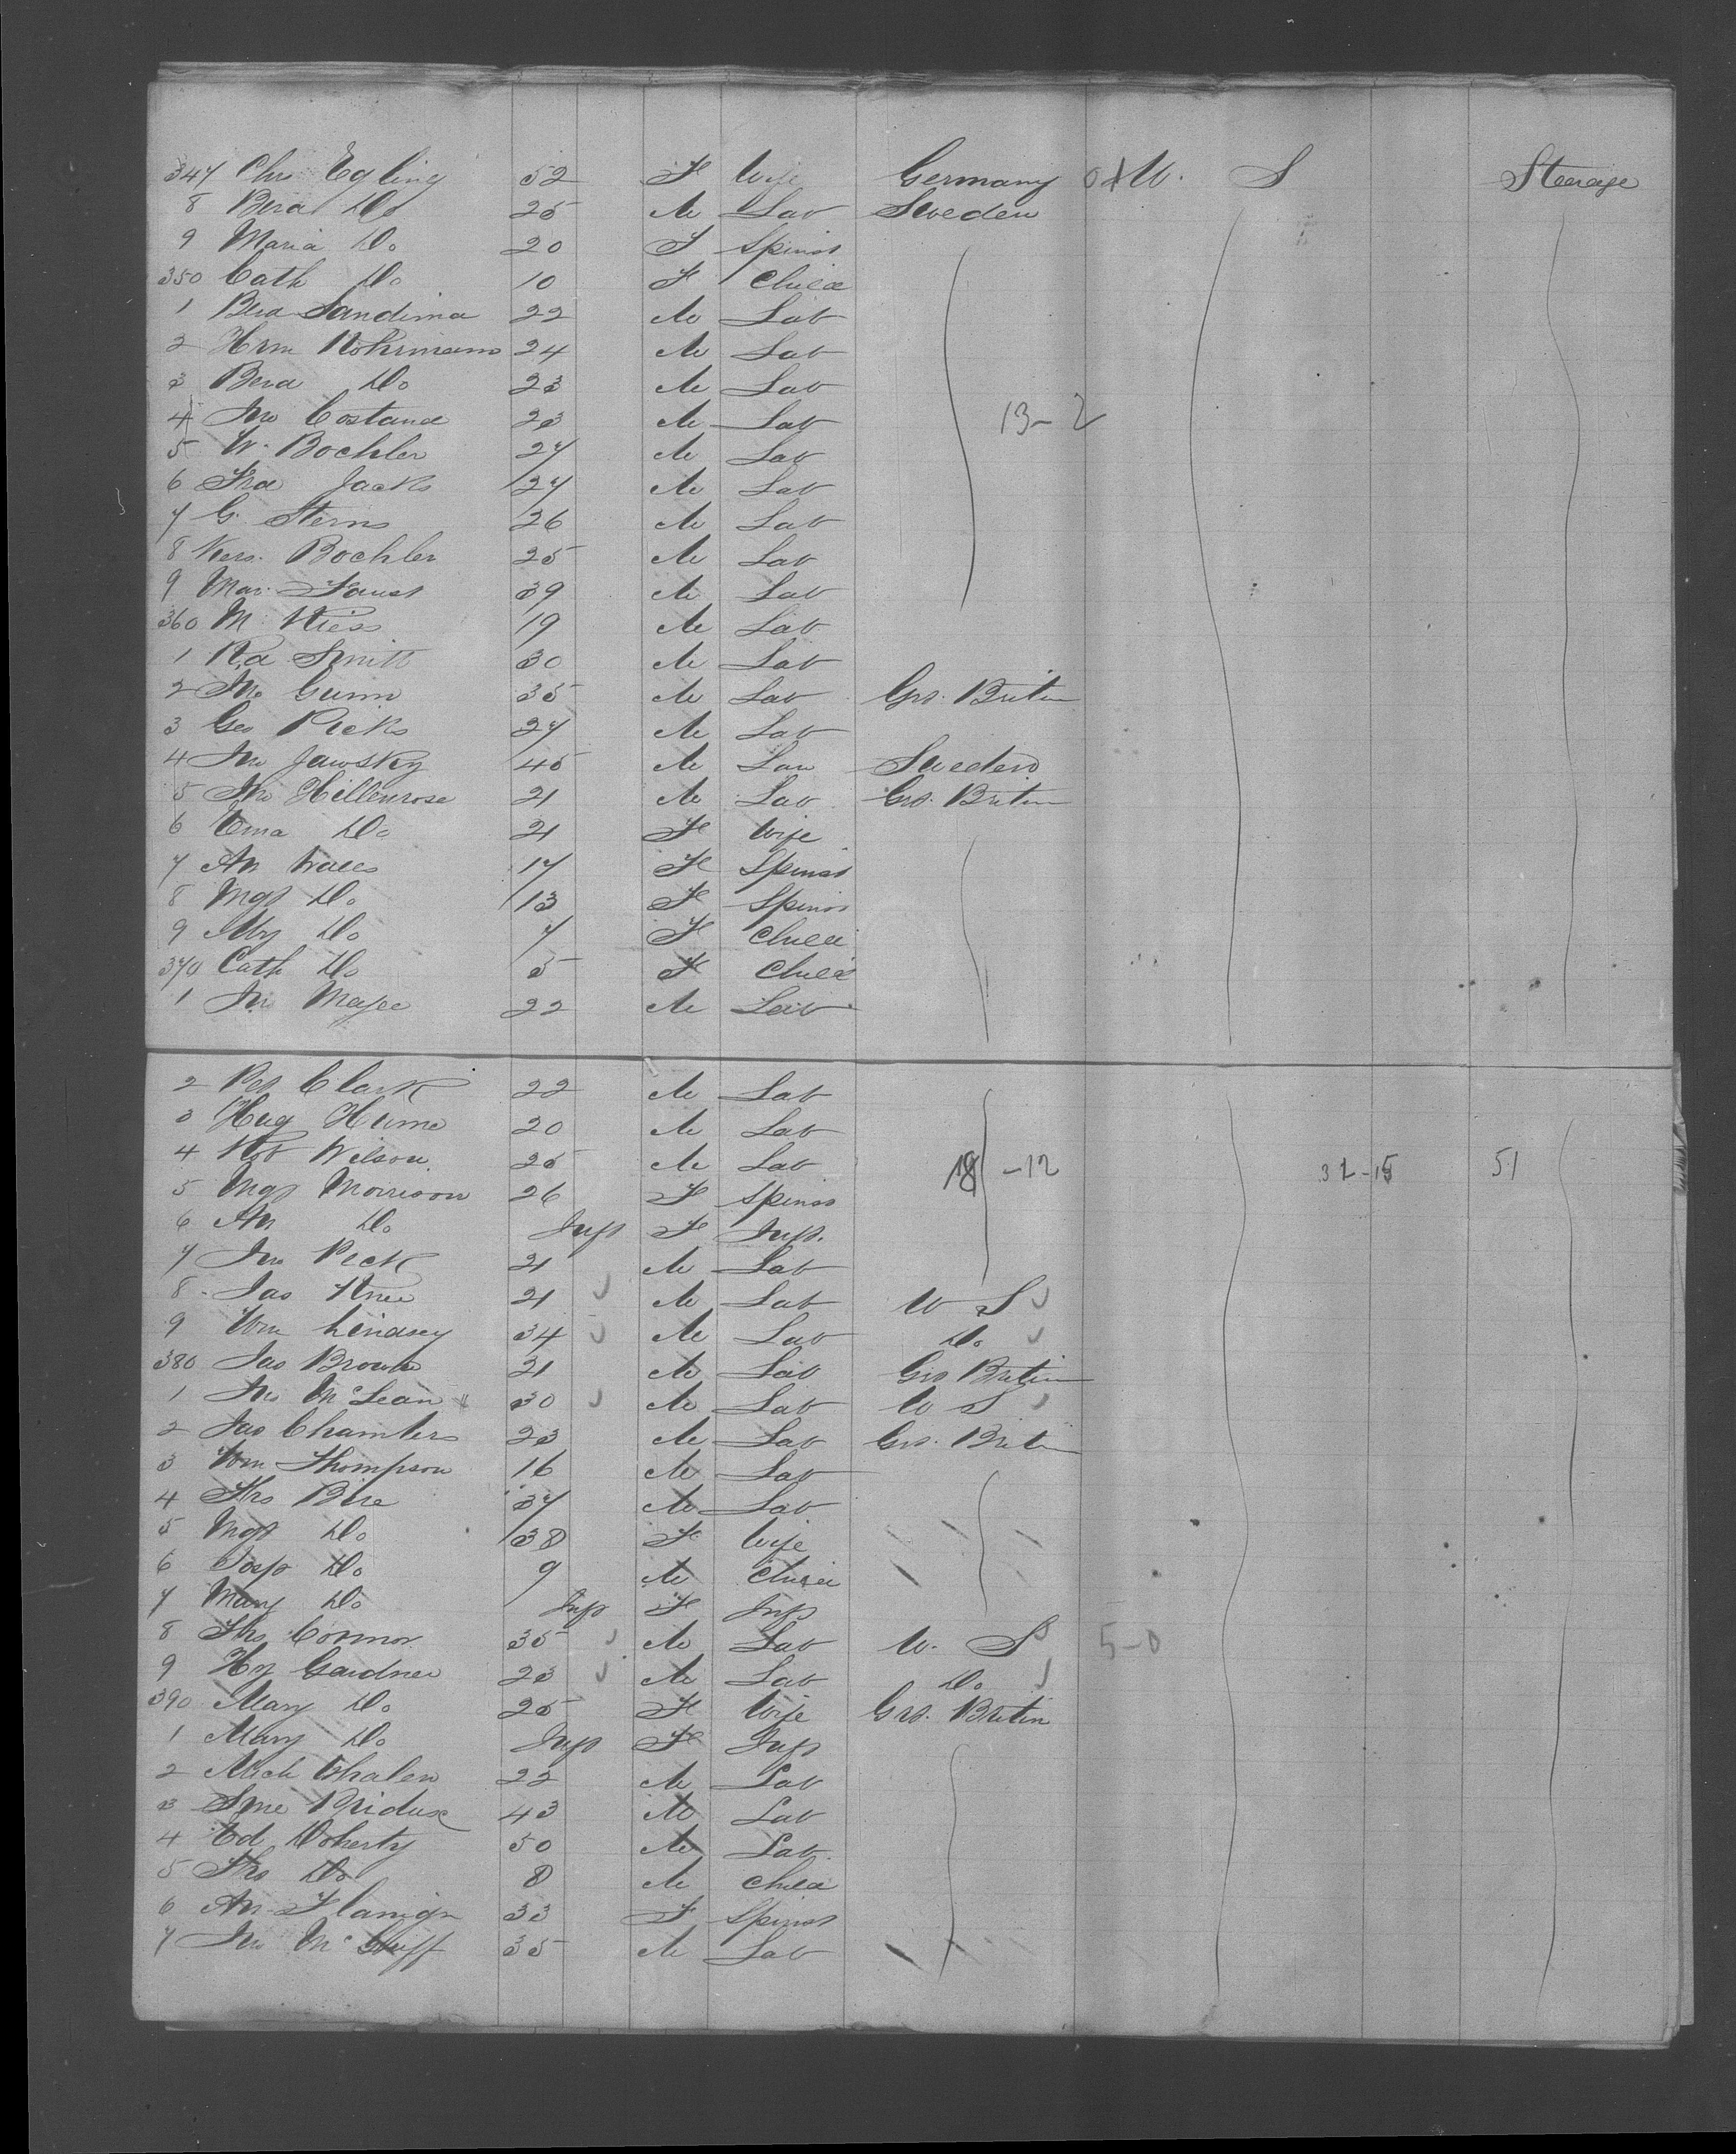 347 Chr Egling 52 F Wife Germany U. S Steerage
8 Bera Do 25 M Lab Sweden
9 Maria Do 20 F Spinst
350 Cath Do 10 F Child
1 Bera Sandima 22 M Lab
2 Hrm Rohrmann 24 M Lab
3 Bera Do 23 M Lab
4 Jno Costand 23 M Lab 13-2
5 W. Bochler 27 M Lab
6 Fra Jacks 27 M Lab
7 G. Sterns 26 M Lab
8 Bochler 25 M Lab
9 Mar. Faust 39 M Lab
360 M Hess 19 M Lab
1 Rd Smitt 30 M Lab
2 Jno Gunn 35 M Lab Grt. Britin
3 Geo Picks 27 M Lab
4 Jno Jawsky 45 M Lab Sweden
5 Jno Hillenrose 21 M Lab Grt. Britin
6 Ema Do 21 F Wife
7 An 17 F Spinst
8 Mgt Do 13 F Spinst
9 My Do 7 F Child
370 Cath Do 5 F Child
1 Jno Magee 22 M Lab
2 Pet Clark 22 M Lab
3 Hug Hume 20 M Lab
4 Rob Wilson 25 M Lab 18-12 32-15 51
5 Mgt Morrison 26 F Spinst
6 An Do Inft F Inft.
7 Jno Peck 21 M Lab
8 Jas 21 M Lab U S
9 Wm Lindsey 34 M Lab Do
380 Jas Brown 21 M Lab Grt Britin
1 Jno McLean 30 M Lab U S
2 Jas Chambers 23 M Lab Grt. Britin
3 Wm Thompson 16 M Lab
4 Ths 37 M Lab
5 Mgt Do 38 F Wife
6 Josp Do 9 M Child
7 Mary Do Inft F Inft
8 Ths Connor 35 M Lab U. S 5-0
9 Hy Gardner 23 M Lab Do
390 Mary Do 25 F Wife Grt. Britin
1 Mary Do Inft F Inft
2 Mich Whalen 22 M Lab
3 43 M Lab
4 Ed Doherty 50 M Lab
5 Ths Do 8 M Child
6 An Flanign 33 F Spinst
7 Jno McGuff 35 M Lab